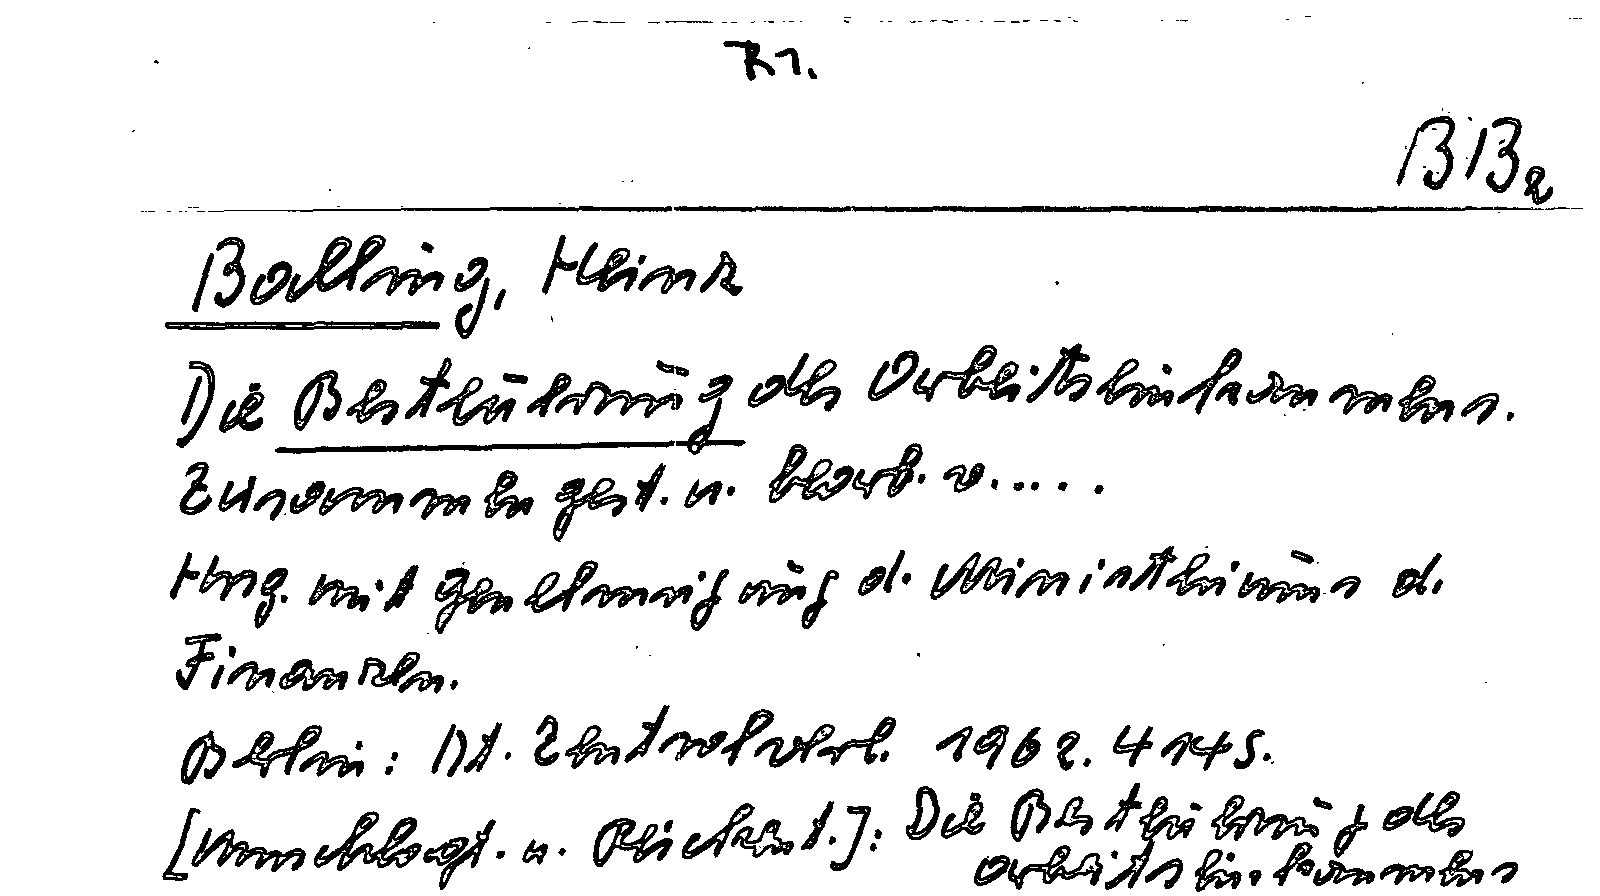 R1.
BB2
Bolling, Heinz
Die Besteuerung des Arbeitseinkommens.
Zusammengest. u. bearb. v.....
Hrsg. mit Genehmigung d. Ministeriums d.
Finanzen.
Berlin: Dt. Zentralverl. 1962. 414 S.
[Umschlagt. u. Rückent.]: Die Besteuerung des
Arbeitseinkommens